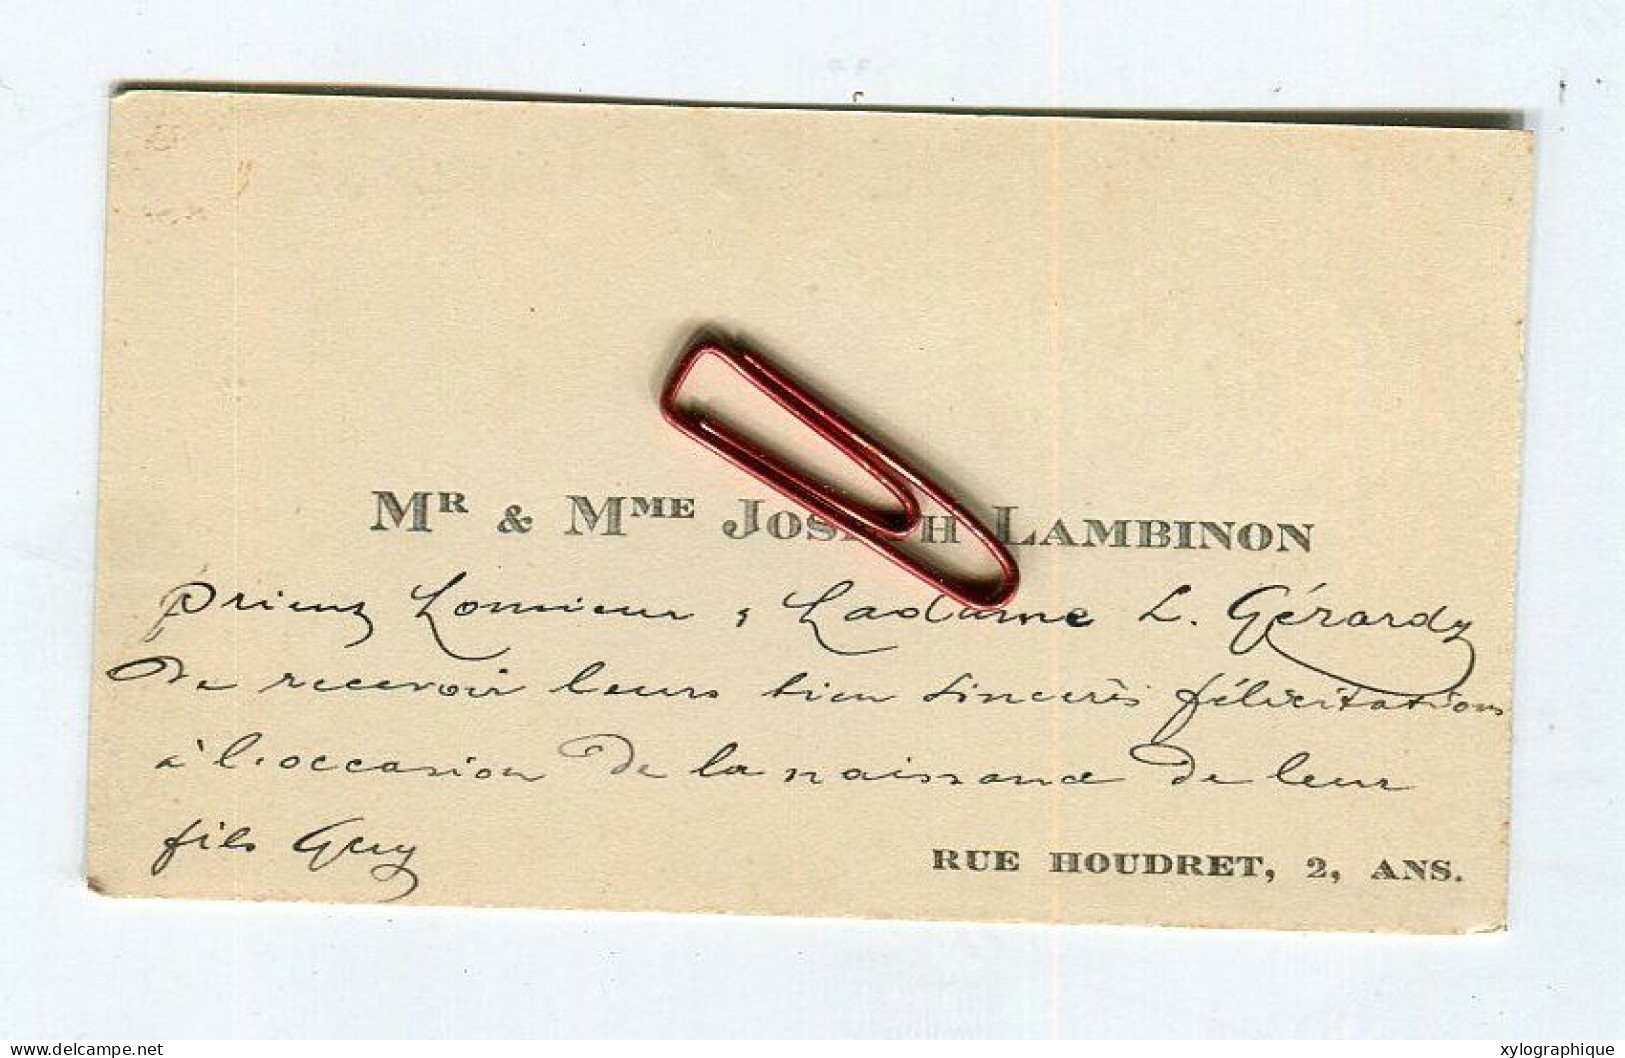 Mr & Mme Joseph Lambinon
prient Monsieur & Madame L. Gérardy
de recevoir leurs bien sincerès félicitations
à l'occasion de la naissance de leur
fils Guy
RUE HOUDRET, 2, ANS.
delcampe.net
xylographique